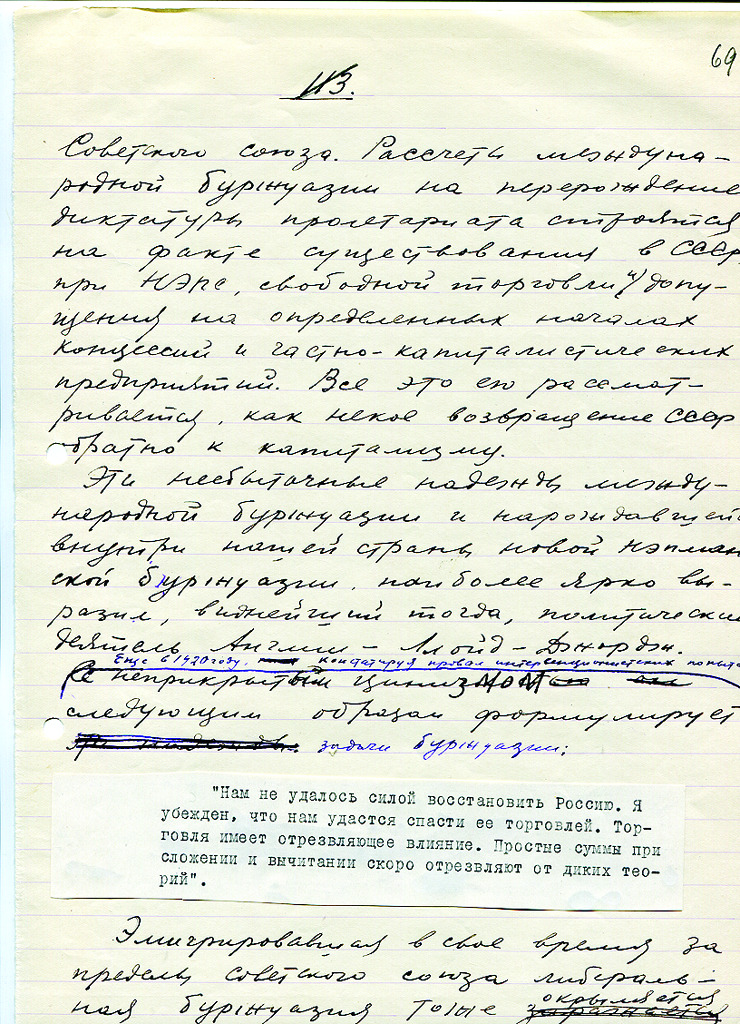 69
113.
Советского союза. Рассчеты междуна-
родной буржуазии на перерождение
диктатуры пролетариата строятся
на факте существования в СССР,
при НЭПе, свободной торговли и допу-
щения на определенных началах
концессий и частно-капиталистических
предприятий. Все это ею рассмат-
ривается, как некое возвращение СССР
обратно к капитализму.
Эти несбыточные надежды между-
народной буржуазии и нарождавшейс
внутри нашей страны новой нэпман
ской буржуазии, наиболее ярко вы-
разил, виднейший тогда, политический
деятель Англии - Ллойд-Джордж.
Еще в 1920 году, констатируя провал интервенционистских попыто
С неприкрытым цинизмом
следующим образом формулирует
задачи буржуазии:
"Нам не удалось силой восстановить Россию. Я
убежден, что нам удастся спасти ее торговлей. Тор-
говля имеет отрезвляющее влияние. Простые суммы при
сложении и вычитании скоро отрезвляют от диких тео-
рий".
Эмигрировавшая в свое время за
пределы советского союза либераль-
окрыляется
ная буржуазия тоже